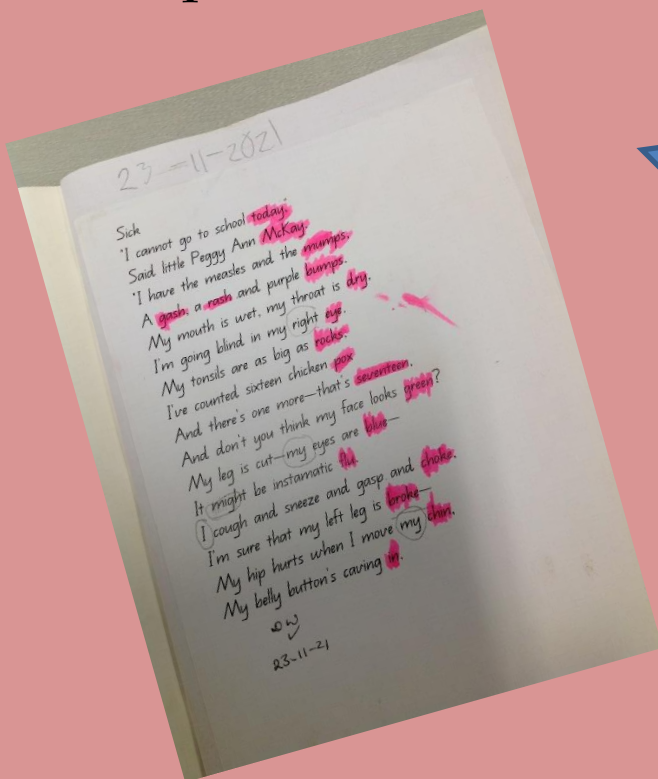 23-11-2021
Sick
"I cannot go to school today,"
Said little Peggy Ann McKay.
"I have the measles and the mumps,
A gash, a rash and purple bumps.
My mouth is wet, my throat is dry,
I'm going blind in my right eye.
My tonsils are as big as rocks,
I've counted sixteen chicken pox
And there's one more—that's seventeen,
And don't you think my face looks green?
My leg is cut—my eyes are blue—
It might be instamatic flu.
I cough and sneeze and gasp and choke,
I'm sure that my left leg is broke—
My hip hurts when I move my chin,
My belly button's caving in.
DW
23-11-21